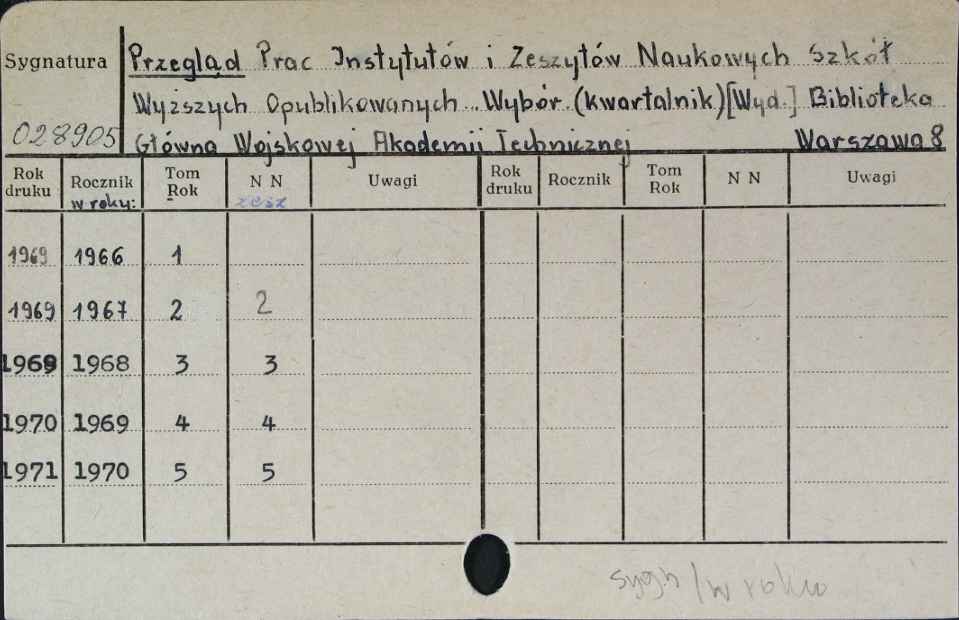 Sygnatura Przegląd Prac Instytutów i Zeszytów Naukowych Szkół
Wyższych Opublikowanych.. Wybór. (kwartalnik) [Wyd.] Biblioteka
028905 Główna Wojskowej Akademii Technicznej Warszawa 8
Rok druku Rocznik w roku: Tom Rok N N zesz Uwagi Rok druku Rocznik Tom Rok N N Uwagi
1969 1966 1
1969 1967 2 2
1969 1968 3 3
1970 1969 4 4
1971 1970 5 5
sygn / w roku